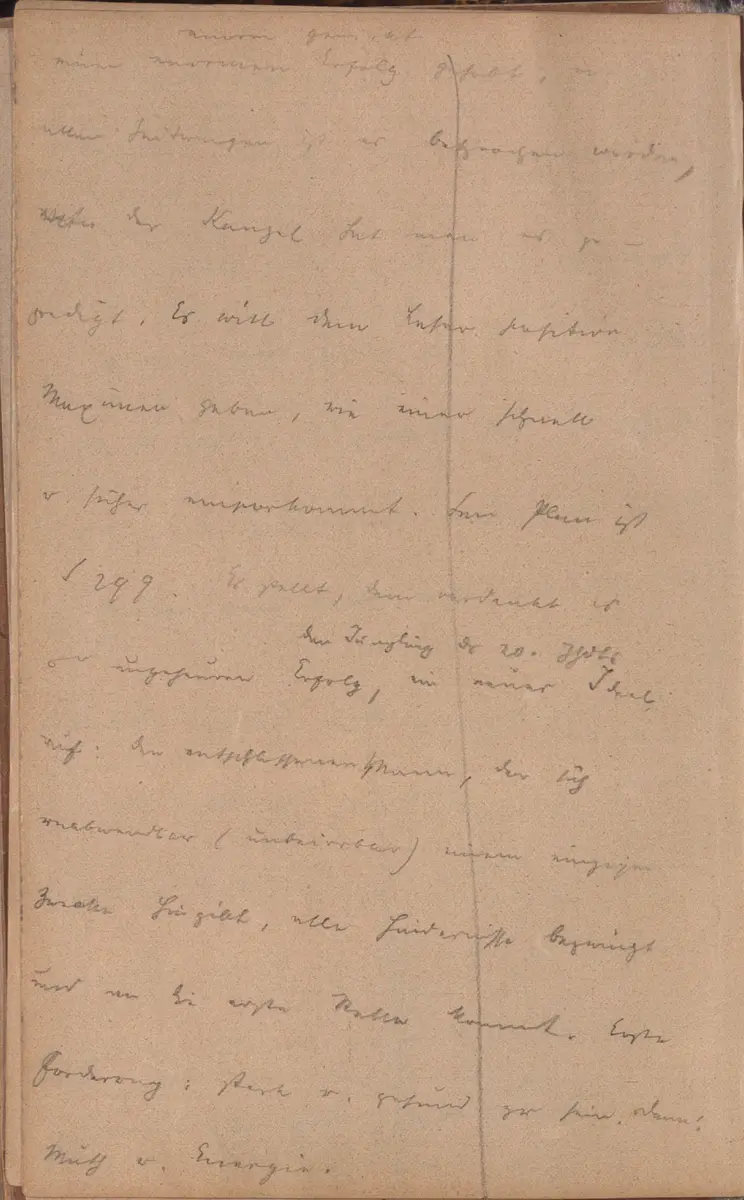 einen enormen Erfolg gehabt, in
allen Zeitungen ist es besprochen worden,
von der Kanzel hat man es ge-
predigt. Er will dem Leser positive
Maximen geben, wie einer schnell
u. sicher emporkommt. Sein Plan ist
S 299. Er stellt, dem verdankt es
den Jüngling des 20. Jhdts
ungeheuren Erfolg, ein neues Ideal
auf: den entschlossenen Mann, der sich
unabwendbar (unbeirrbar) einem einzigen
Zwecke hingibt, alle Hindernisse bezwingt
und an die erste Stelle kommt. Erste
Forderung: stark u. gesund zu sein. dann:
Muth u. Energie.